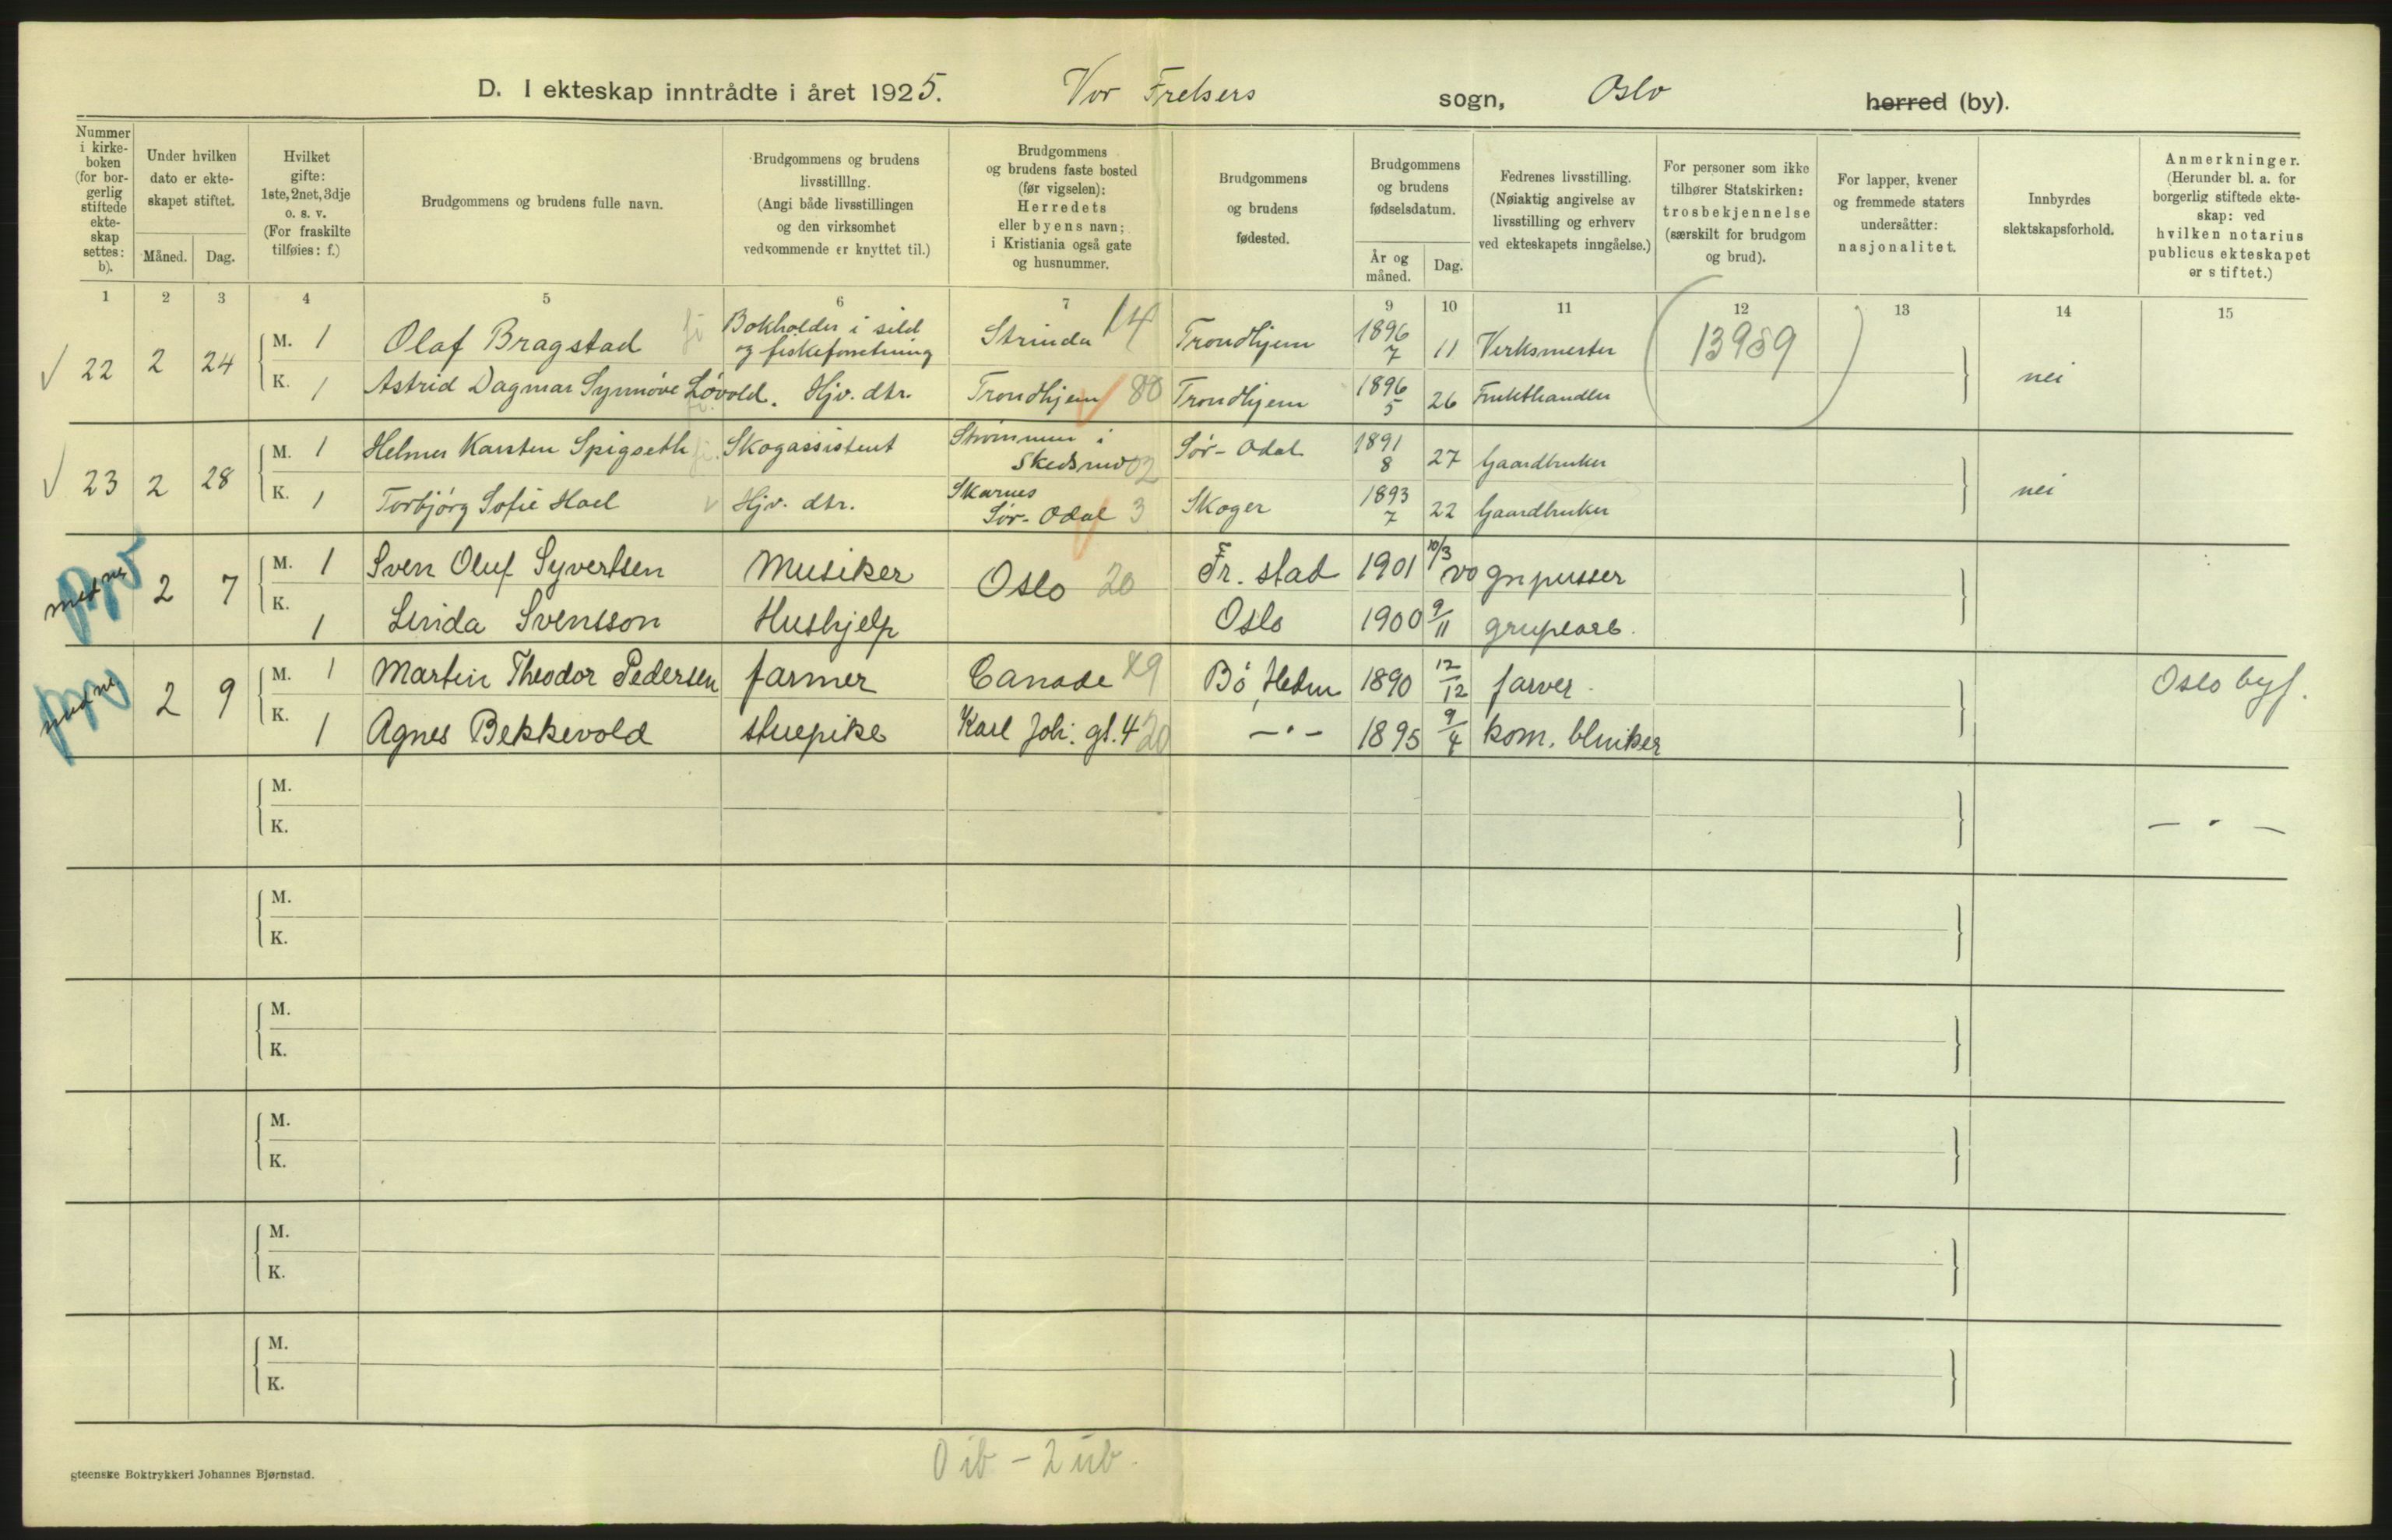 D. I ekteskap inntrådte i året 1925. Vor Frelsers sogn, Oslo herred (by).
Nummer i kirkeboken (for borgerlig stiftede ekteskap settes: b).
Under hvilken dato er ekteskapet stiftet.
Måned. Dag.
Hvilket gifte: 1ste, 2net, 3dje o. s. v. (For fraskilte tilføies: f.)
Brudgommens og brudens fulle navn.
Brudgommens og brudens livsstilling. (Angi både livsstillingen og den virksomhet vedkommende er knyttet til.)
Brudgommens og brudens faste bosted (før vigselen): Herredets eller byens navn; i Kristiania også gate og husnummer.
Brudgommens og brudens fødested.
Brudgommens og brudens fødselsdatum.
År og måned. Dag.
Fedrenes livsstilling. (Nøiaktig angivelse av livsstilling og erhverv ved ekteskapets inngåelse.)
For personer som ikke tilhører Statskirken: trosbekjennelse (særskilt for brudgom og brud).
For lapper, kvener og fremmede staters undersåtter: nasjonalitet.
Innbyrdes slektskapsforhold.
Anmerkninger. (Herunder bl. a. for borgerlig stiftede ekteskap: ved hvilken notarius publicus ekteskapet er stiftet.)
1 2 3 4 5 6 7 8 9 10 11 12 13 14 15
22 2 24 M. 1 Olaf Bragstad Bokholder i sild og fiskeforretning Strinda 14 Trondhjem 1896 7 11 Verksmester (13959) nei
K. 1 Astrid Dagmar Synnøve Løvold. Hjv. dtr. Trondhjem 80 Trondhjem 1896 5 26 Frukthandler
23 2 28 M. 1 Helmer Karsten Spigseth Skogassistent Strømmen i Skedsmo 02 Sør-Odal 1891 8 27 Gaardbruker nei
K. 1 Torbjørg Sofie Hoel Hjv. dtr. Skarnes Sør-Odal 3 Skoger 1893 7 22 Gaardbruker
2 7 M. 1 Sven Oluf Syvertsen Musiker Oslo 20 Fr. stad 1901 10/3 vognpusser
K. 1 Linda Svensson Hushjelp Oslo 1900 9/11 grupearb.
2 9 M. 1 Martin Theodor Pedersen farmer Canade 49 Bö, Hedm 1890 12/12 farver. Oslo byf.
K. 1 Agnes Bekkevold stuepike Karl Joh. gt. 4 20 —"— 1895 9/4 kom. bluiker
M.
K. —"—
M.
K.
M.
K.
M.
K.
M.
K.
M.
K.
0 ib - 2 ub.
steenske Boktrykkeri Johannes Bjørnstad.